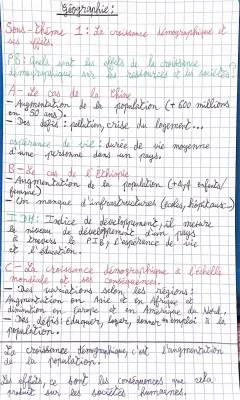 Géographie :
Sous-thème 1 : La croissance démographique et
ses effets.
PB : Quels sont les effets de la croissance
démographique sur les ressources et les sociétés ?
A - Le cas de la Chine
- Augmentation de la population (+ 600 millions
en 50 ans).
- Des défis : pollution, crise du logement...
espérance de vie : durée de vie moyenne
d'une personne dans un pays.
B - Le cas de l'Ethiopie
- Augmentation de la population (+ enfants/
femme)
- Un manque d'infrastructures (écoles, hôpitaux...)
IDH : Indice de développement, il mesure
le niveau de développement d'un pays
à travers le PIB, l'espérance de vie
et l'éducation.
C - La croissance démographique à l'échelle
mondiale et ses conséquences
- Des variations selon les régions :
Augmentation en Asie et en Afrique et
diminution en Europe et en Amérique du Nord.
- Des défis : éduquer, loger, donner un emploi à la
population.
La croissance démographique, c'est l'augmentation
de la population.
Les effets, ce sont les conséquences que cela
produit sur les sociétés humaines.